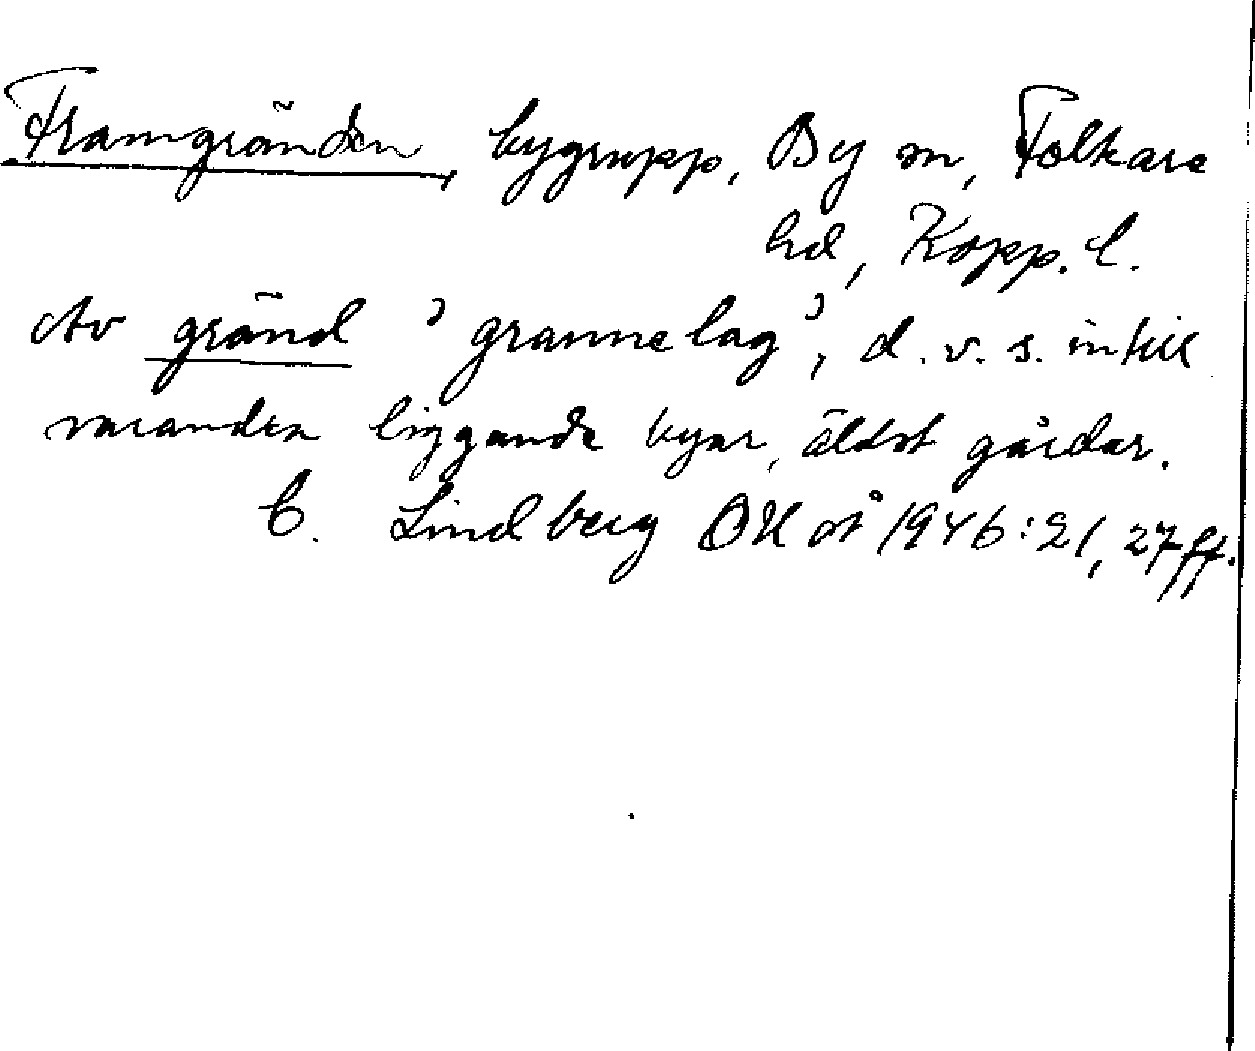 Framgränden, bygrupp, By sn, Folkare
hd, Kopp. l.
Av gränd 'grannelag', d.v.s. intill
varandra liggande byar, äldst gårdar.
C. Lindberg OUÅ 1946:21, 27 ff.